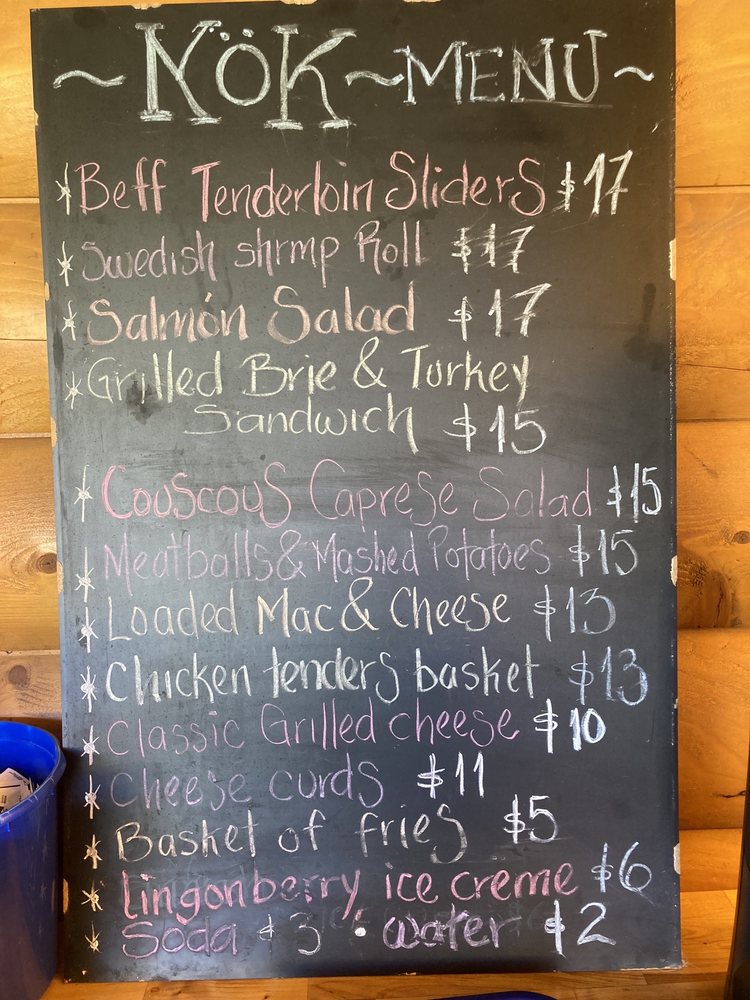 ~ KÖK ~ MENU ~
* Beff Tenderloin Sliders $17
* Swedish shrmp Roll $17
* Salmón Salad $17
* Grilled Brie & Turkey
Sandwich $15
* Couscous Caprese Salad $15
* Meatballs & Mashed Potatoes $15
* Loaded Mac & Cheese $13
* Chicken tenders basket $13
* Classic Grilled cheese $10
* Cheese curds $11
* Basket of fries $5
* Lingonberry ice creme $6
* Soda $3 • water $2